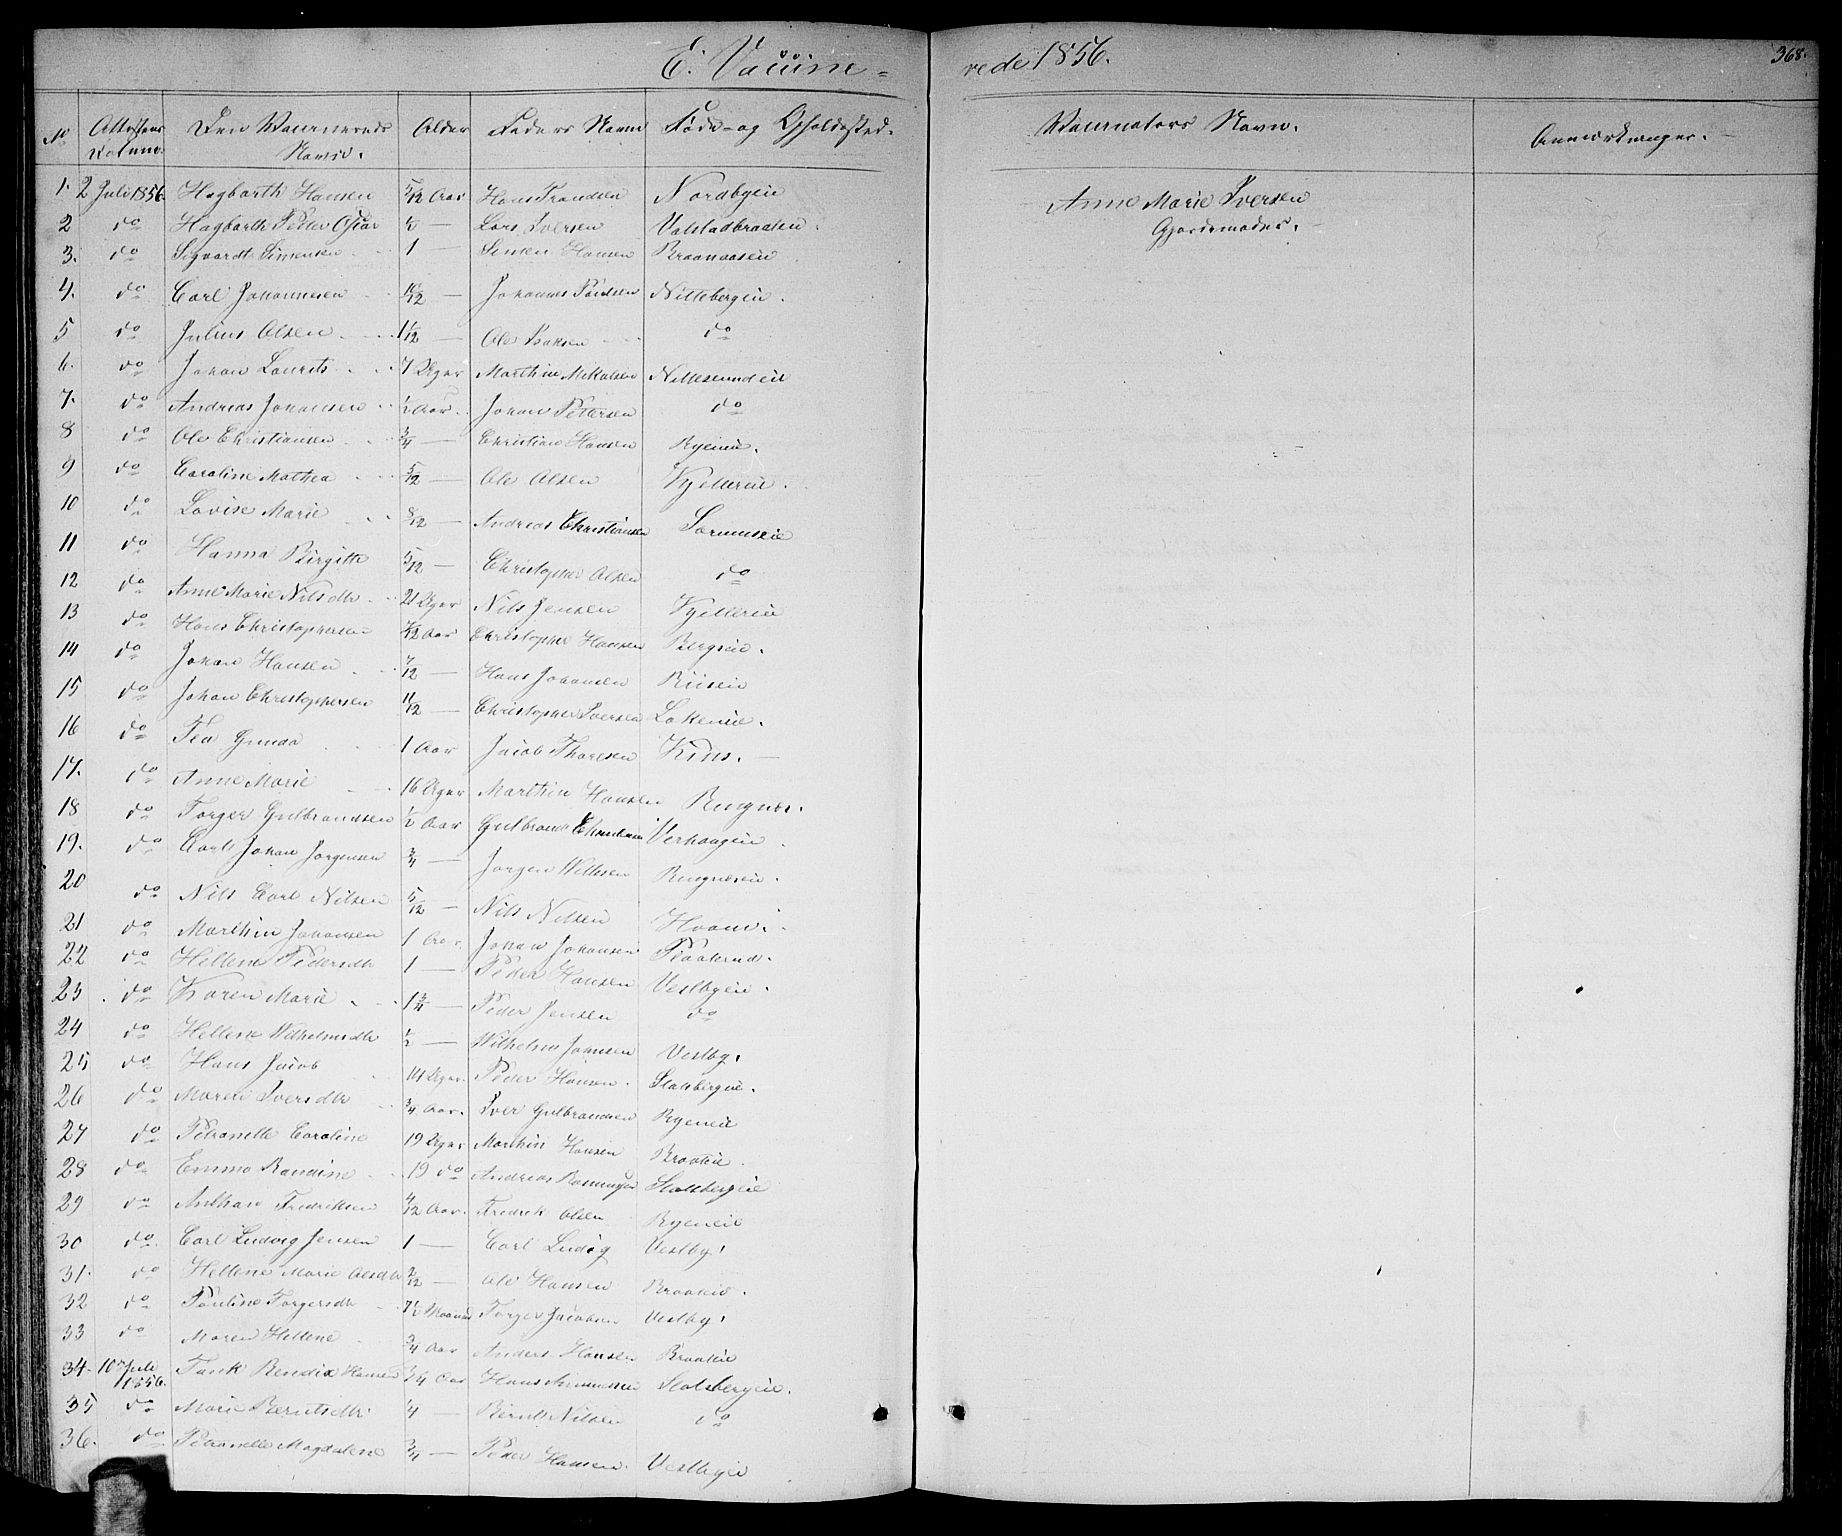 E. Vaccine-
rede 1856.
368.
No
Attestens Datum.
Den Vaccineredes Navn.
Alder
Faders Navn
Føde- og Opholdssted.
Vaccinators Navn.
Anmærkninger.
1. 2 Juli 1856. Hagbarth Hansen 5/12 Aar Hans Frandsen Nordbyeie Anne Marie Iversen
2 do Hagbarth Peder Oscar 1/2 — Lars Iversen Valstadbraaten. Gjordemoder.
3. do Sigvardt Simensen 1 Simen Hansen Braanaasen
4. do Carl Johannesen 10/12 — Johannes Paulsen Nittebergeie.
5 do Julius Olsen 1 1/12 — Ole Isaksen do
6. do Johan Laurits 7 Uger Marthin Mikalsen
7. do Andreas Johansen 1/2 Aar. Johan Petersen do
8 do Ole Christiansen 3/4 — Christian Hansen Ryeneie.
9 do Caroline Mathea 5/12 — Ole Olsen Kjellereie.
10 do Lovise Marie 8/12 — Andreas Christiansen
11 do Hanna Birgitte 5/12 — Christopher Olsen do
12 do Anne Marie Nilsdtr 21 Uger Nils Jensen Kjellereie
13 do Hans Christophersen 7/12 Aar Christopher Hansen Bergseie.
14 do Johan Hansen 7/12 — Hans Johansen Riiseie
15 do Johan Christophersen 11/12 — Christopher Iversen Lakeneie.
16 do Tea Gunda 1 Aar Jacob Thoresen
17. do Anne Marie 16 Uger Marthin Hansen Ringnæs.
18 do Torger Gulbrandsen 1/2 Aar Gulbrand Verhaugeie.
19. do Carl Johan Jørgensen 3/4 — Jørgen Willesen Ringnæseie.
20 do Nils Carl Nilsen 5/12 — Nils Nilsen
21 do Marthin Johansen 1 Aar. Johan Johansen
22 do Hellene Pedersdtr 1 — Peder Hansen Vestbyeie.
23. do Karen Marie 1 3/4 — Peder Jensen do
24 do Hellene Wilhelmsdtr 1/2 — Wilhelm Johnsen Vestby.
25 do Hans Jacob 14 Uger. Peder Hansen. Stalsbergeie.
26 do Maren Iversdtr 3/4 Aar. Iver Gulbrandsen Ryeneie
27 do Petronelle Caroline 19 Uger Marthin Hansen Braateie.
28 do Emma Randine 19 do Andreas Stalsbergeie
29 do Anthon Fredriksen 4/12 Aar. Fredrik Olsen Ryeneie
30 do. Carl Ludvig Jensen 1 — Carl Ludvig Vestby.
31. do Hellene Marie Olsdtr 2/12 — Ole Hansen Braateie.
32 do Pauline Torgersdtr 7 1/2 Maaned Torger Jacobsen Vestby.
33 do Maren Hellene 3/4 Aar Anders Hansen Braateie
34. 10de Juli 1856. Bendix Hansen 3/4 Aar Stalsbergeie.
35 do Marie Berntsdtr 1/4 — Berndt Nilsen do
36. do Petronelle Magdalene 3/4 — Peder Hansen. Vestbyeie